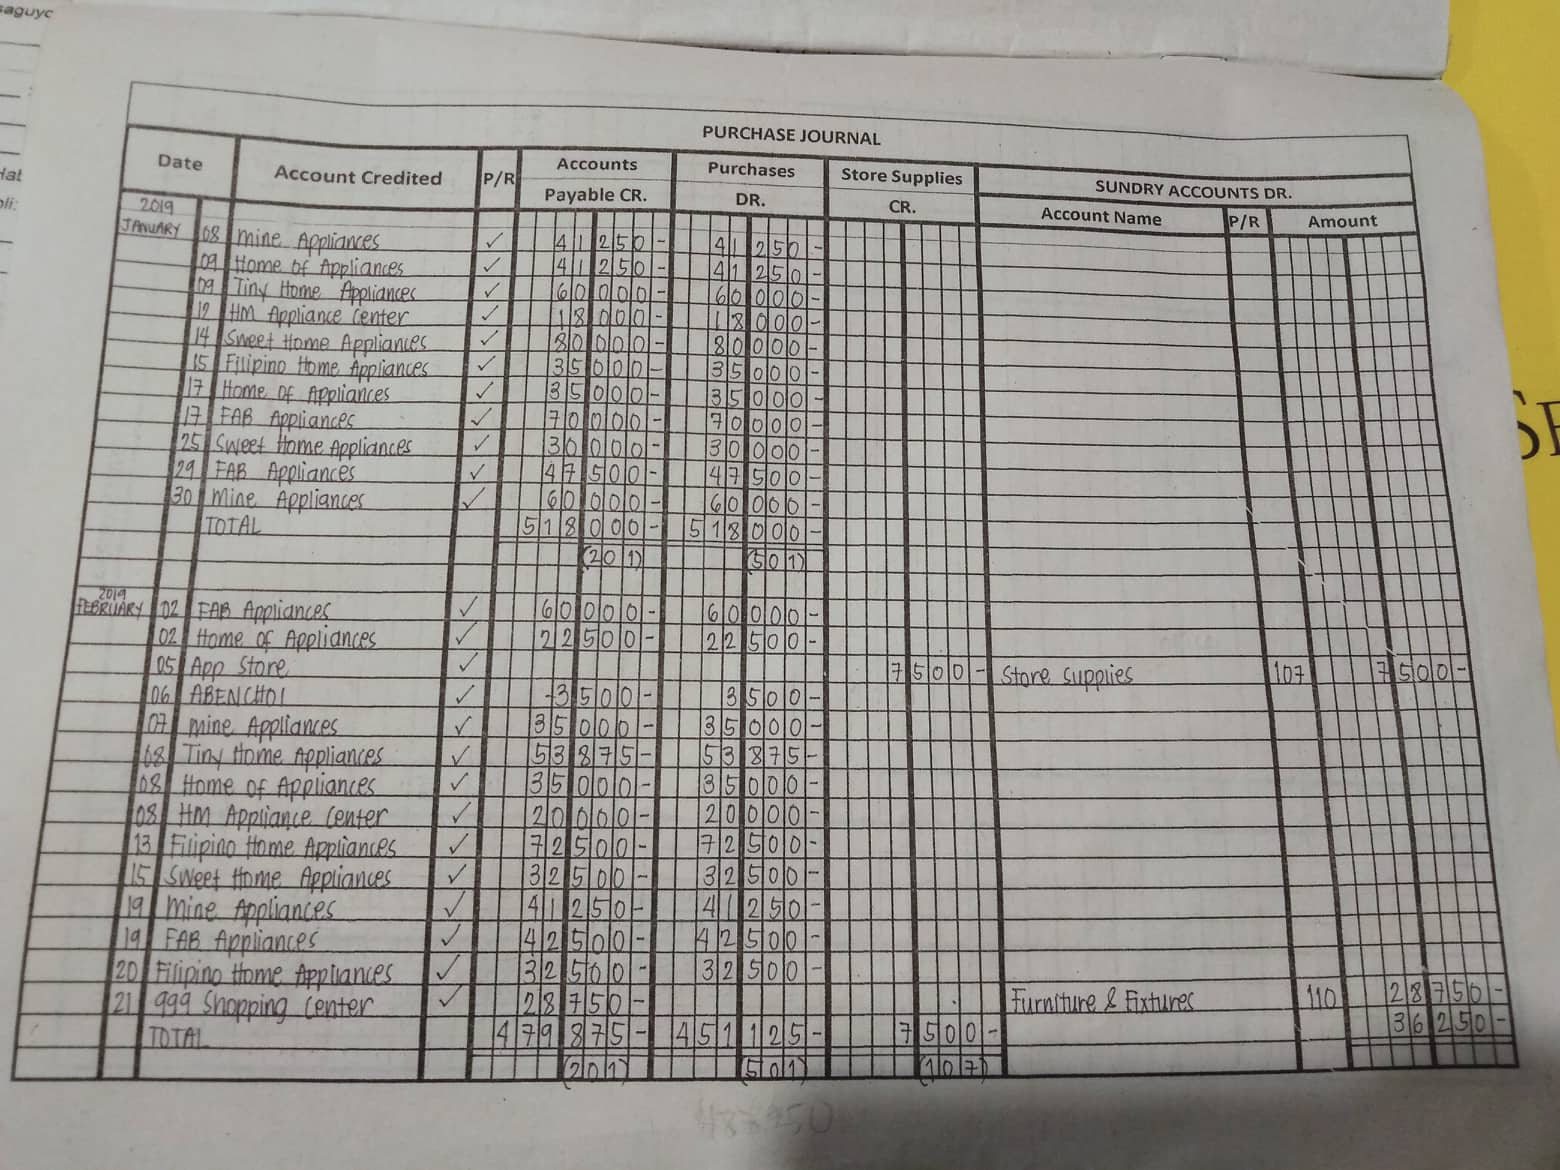 saguyc
Hat
oli:
SE
PURCHASE JOURNAL
Date Account Credited P/R Accounts Payable CR. Purchases DR. Store Supplies CR. SUNDRY ACCOUNTS DR.
Account Name P/R Amount
2019
JANUARY 08 Mine Appliances ✓ 41250- 41250-
09 Home of Appliances ✓ 41250- 41250-
09 Tiny Home Appliances ✓ 60000- 60000-
12 HM Appliance Center ✓ 18000- 18000-
14 Sweet Home Appliances ✓ 80000- 80000-
15 Filipino Home Appliances ✓ 35000- 35000-
17 Home of Appliances ✓ 35000- 35000-
17 FAB Appliances ✓ 70000- 70000-
25 Sweet Home Appliances ✓ 30000- 30000-
29 FAB Appliances ✓ 47500- 47500-
30 Mine Appliances ✓ 60000- 60000-
TOTAL 518000- 518000-
(201) (501)
2019
FEBRUARY 02 FAB Appliances ✓ 60000- 60000-
02 Home of Appliances ✓ 22500- 22500-
05 App Store ✓ 7500- Store supplies 107 7500-
06 ABENCHOI ✓ 3500- 3500-
07 Mine Appliances ✓ 35000- 35000-
08 Tiny Home Appliances ✓ 53875- 53875-
08 Home of Appliances ✓ 35000- 35000-
08 HM Appliance Center ✓ 20000- 20000-
13 Filipino Home Appliances ✓ 72500- 72500-
15 Sweet Home Appliances ✓ 32500- 32500-
19 Mine Appliances ✓ 41250- 41250-
19 FAB Appliances ✓ 42500- 42500-
20 Filipino Home Appliances ✓ 32500- 32500-
21 999 Shopping Center ✓ 28750- Furniture & Fixtures 110 28750-
TOTAL 479875- 451125- 7500- 36250-
(201) (501) (107)